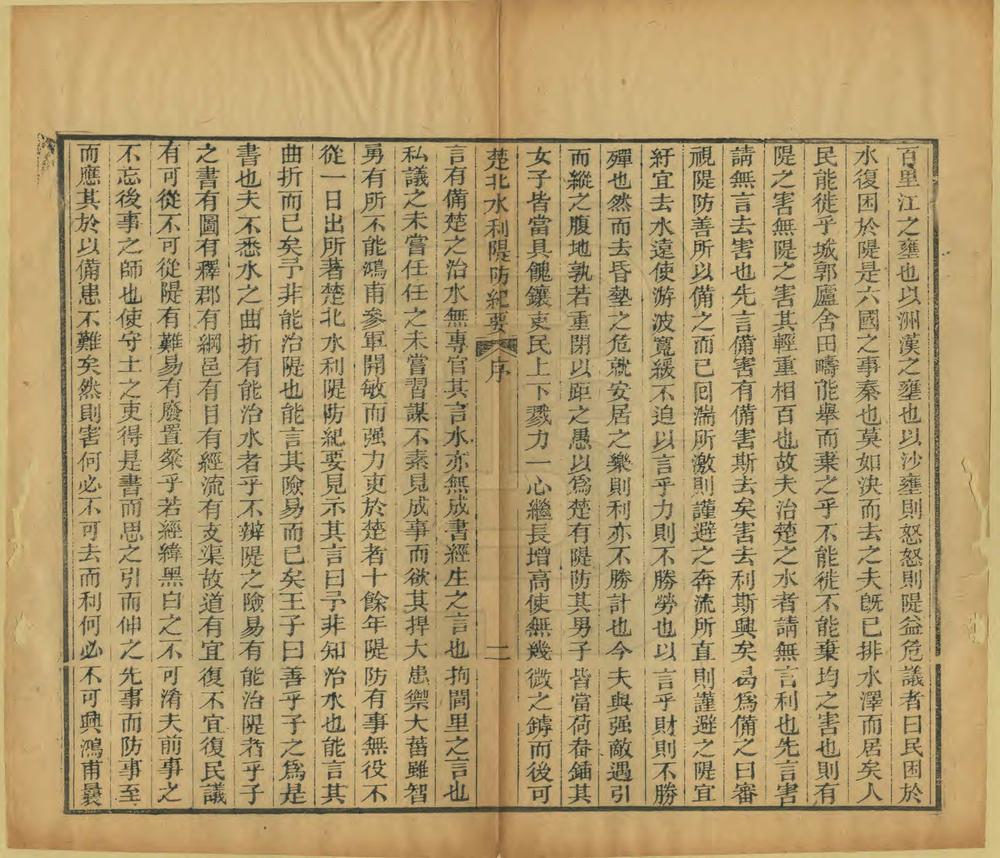 百里江之壅也以洲漢之壅也以沙壅則怒怒則隄益危議者曰民困於
水復困於隄是六國之事秦也莫如決而去之夫旣已排水澤而居矣人
民能徙乎城郭廬舍田疇能舉而棄之乎不能徙不能棄均之害也則有
隄之害無隄之害其輕重相百也故夫治楚之水者請無言利也先言害
請無言去害也先言備害有備害斯去矣害去利斯興矣曷爲備之曰審
視隄防善所以備之而已回湍所激則謹避之奔流所直則謹避之隄宜
紆宜去水遠使游波寬緩不迫以言乎力則不勝勞也以言乎財則不勝
殫也然而去昏墊之危就安居之樂則利亦不勝計也今夫與强敵遇引
而縱之腹地孰若重閉以距之愚以爲楚有隄防其男子皆當荷畚鍤其
女子皆當具餽饟吏民上下戮力一心繼長增高使無幾微之罅而後可
楚北水利隄防紀要 序 二
言有備楚之治水無專官其言水亦無成書經生之言也拘閭里之言也
私議之未嘗任任之未嘗習謀不素見成事而欲其捍大患禦大菑雖智
勇有所不能鴻甫參軍開敏而强力吏於楚者十餘年隄防有事無役不
從一日出所著楚北水利隄防紀要見示其言曰予非知治水也能言其
曲折而已矣予非能治隄也能言其險易而已矣王子曰善乎子之爲是
書也夫不悉水之曲折有能治水者乎不辨隄之險易有能治隄者乎子
之書有圖有釋郡有綱邑有目有經流有支渠故道有宜復不宜復民議
有可從不可從隄有難易有廢置粲乎若經緯黑白之不可淆夫前事之
不忘後事之師也使守土之吏得是書而思之引而伸之先事而防事至
而應其於以備患不難矣然則害何必不可去而利何必不可興鴻甫曩